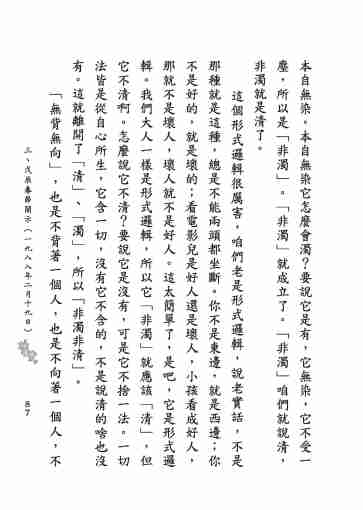 本自無染。本自無染它怎麼會濁？要說它是有，它無染，它不受一
塵，所以是「非濁」。「非濁」就成立了。「非濁」咱們就說清，
非濁就是清了。
這個形式邏輯很厲害，咱們老是形式邏輯，說老實話，不是
那種就是這種，總是不能兩頭都坐斷。你不是東邊，就是西邊；你
不是好的，就是壞的；看電影兒是好人還是壞人，小孩看成好人，
那就不是壞人，壞人就不是好人。這太簡單了，是吧，它是形式邏
輯。我們大人一樣是形式邏輯，所以它「非濁」就應該「清」，但
它不清啊。怎麼說它不清？要說它是沒有，可是它不捨一法。一切
法皆是從自心所生，它含一切，沒有它不含的，不是說清的啥也沒
有。這就離開了「清」、「濁」，所以「非濁非清」。
「無背無向」，也是不背著一個人，也是不向著一個人，不
三、戊辰春節開示（一九八八年二月十九日）
87